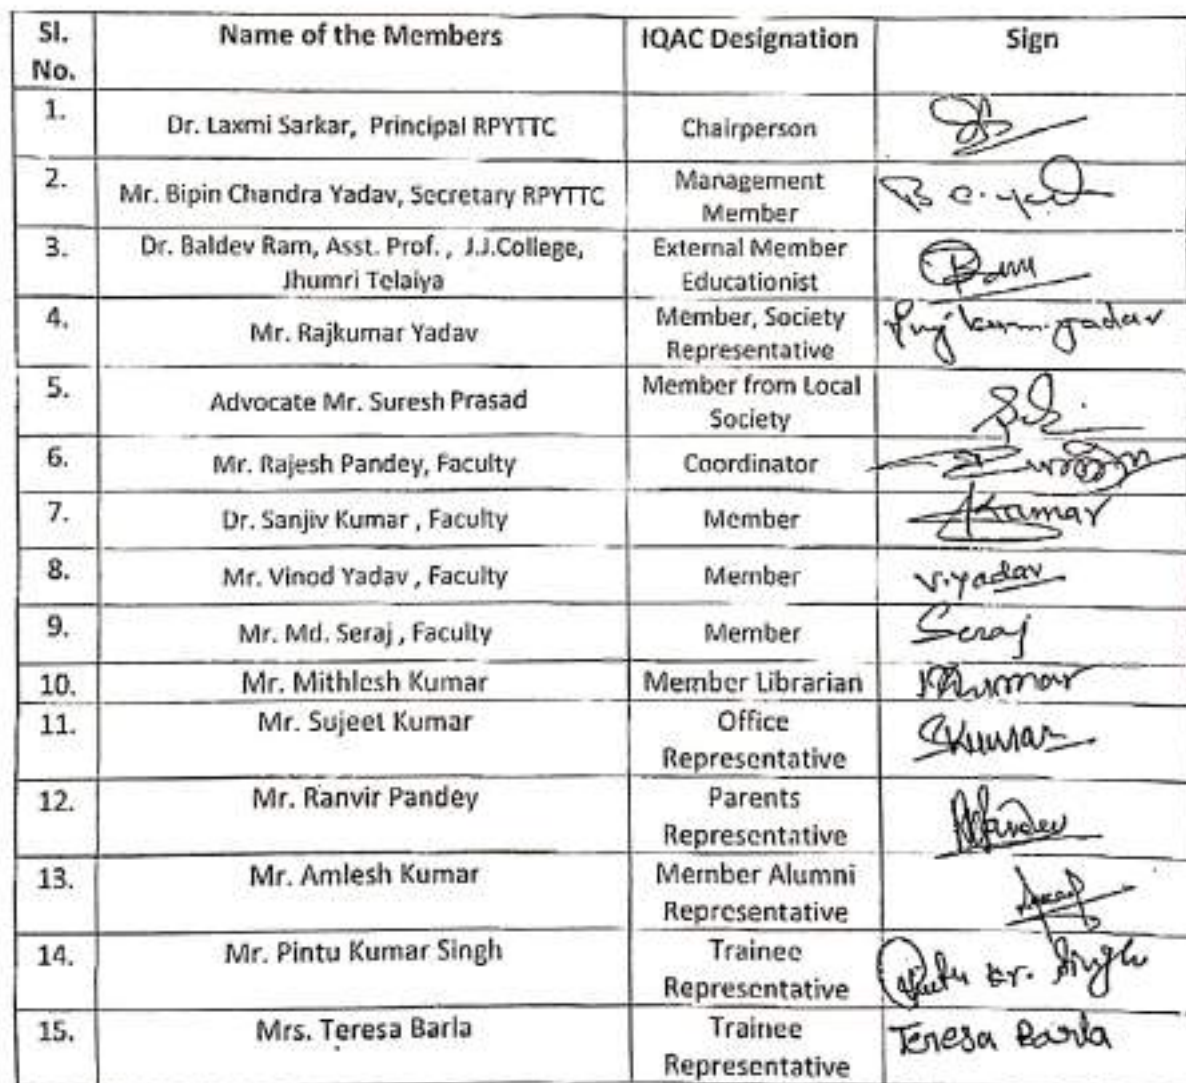 Sl. No. Name of the Members IQAC Designation Sign
1. Dr. Laxmi Sarkar, Principal RPYTTC Chairperson
2. Mr. Bipin Chandra Yadav, Secretary RPYTTC Management Member B C. Yadav
3. Dr. Baldev Ram, Asst. Prof. , J.J.College, Jhumri Telaiya External Member Educationist Ram
4. Mr. Rajkumar Yadav Member, Society Representative Rajkumar yadav
5. Advocate Mr. Suresh Prasad Member from Local Society
6. Mr. Rajesh Pandey, Faculty Coordinator
7. Dr. Sanjiv Kumar , Faculty Member SKumar
8. Mr. Vinod Yadav , Faculty Member V.yadav
9. Mr. Md. Seraj , Faculty Member Seraj
10. Mr. Mithlesh Kumar Member Librarian MKumar
11. Mr. Sujeet Kumar Office Representative SKumar
12. Mr. Ranvir Pandey Parents Representative RPandey
13. Mr. Amlesh Kumar Member Alumni Representative
14. Mr. Pintu Kumar Singh Trainee Representative Pintu Kr. Singh
15. Mrs. Teresa Barla Trainee Representative Teresa Barla